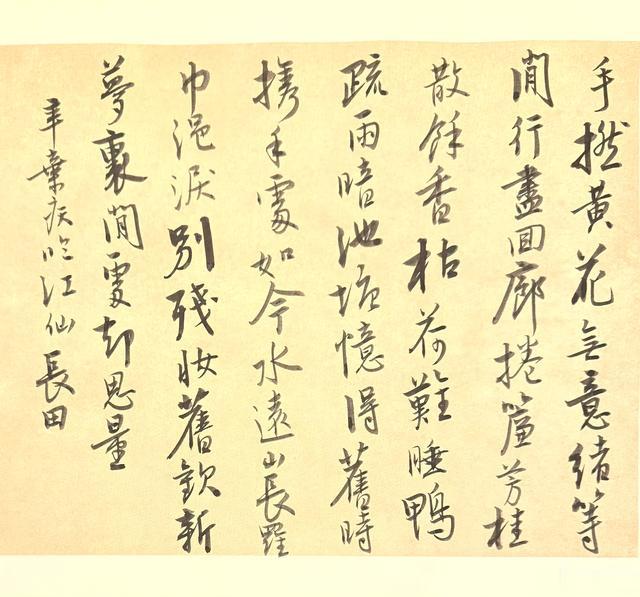 手撚黃花無意緒等
閒行盡回廊捲簾芳桂
散餘香枯荷難睡鴨
疏雨暗池塘憶得舊時
攜手處如今水遠山長羅
巾浥淚別殘妝舊歡新
夢裏閒處却思量
辛棄疾臨江仙 長田